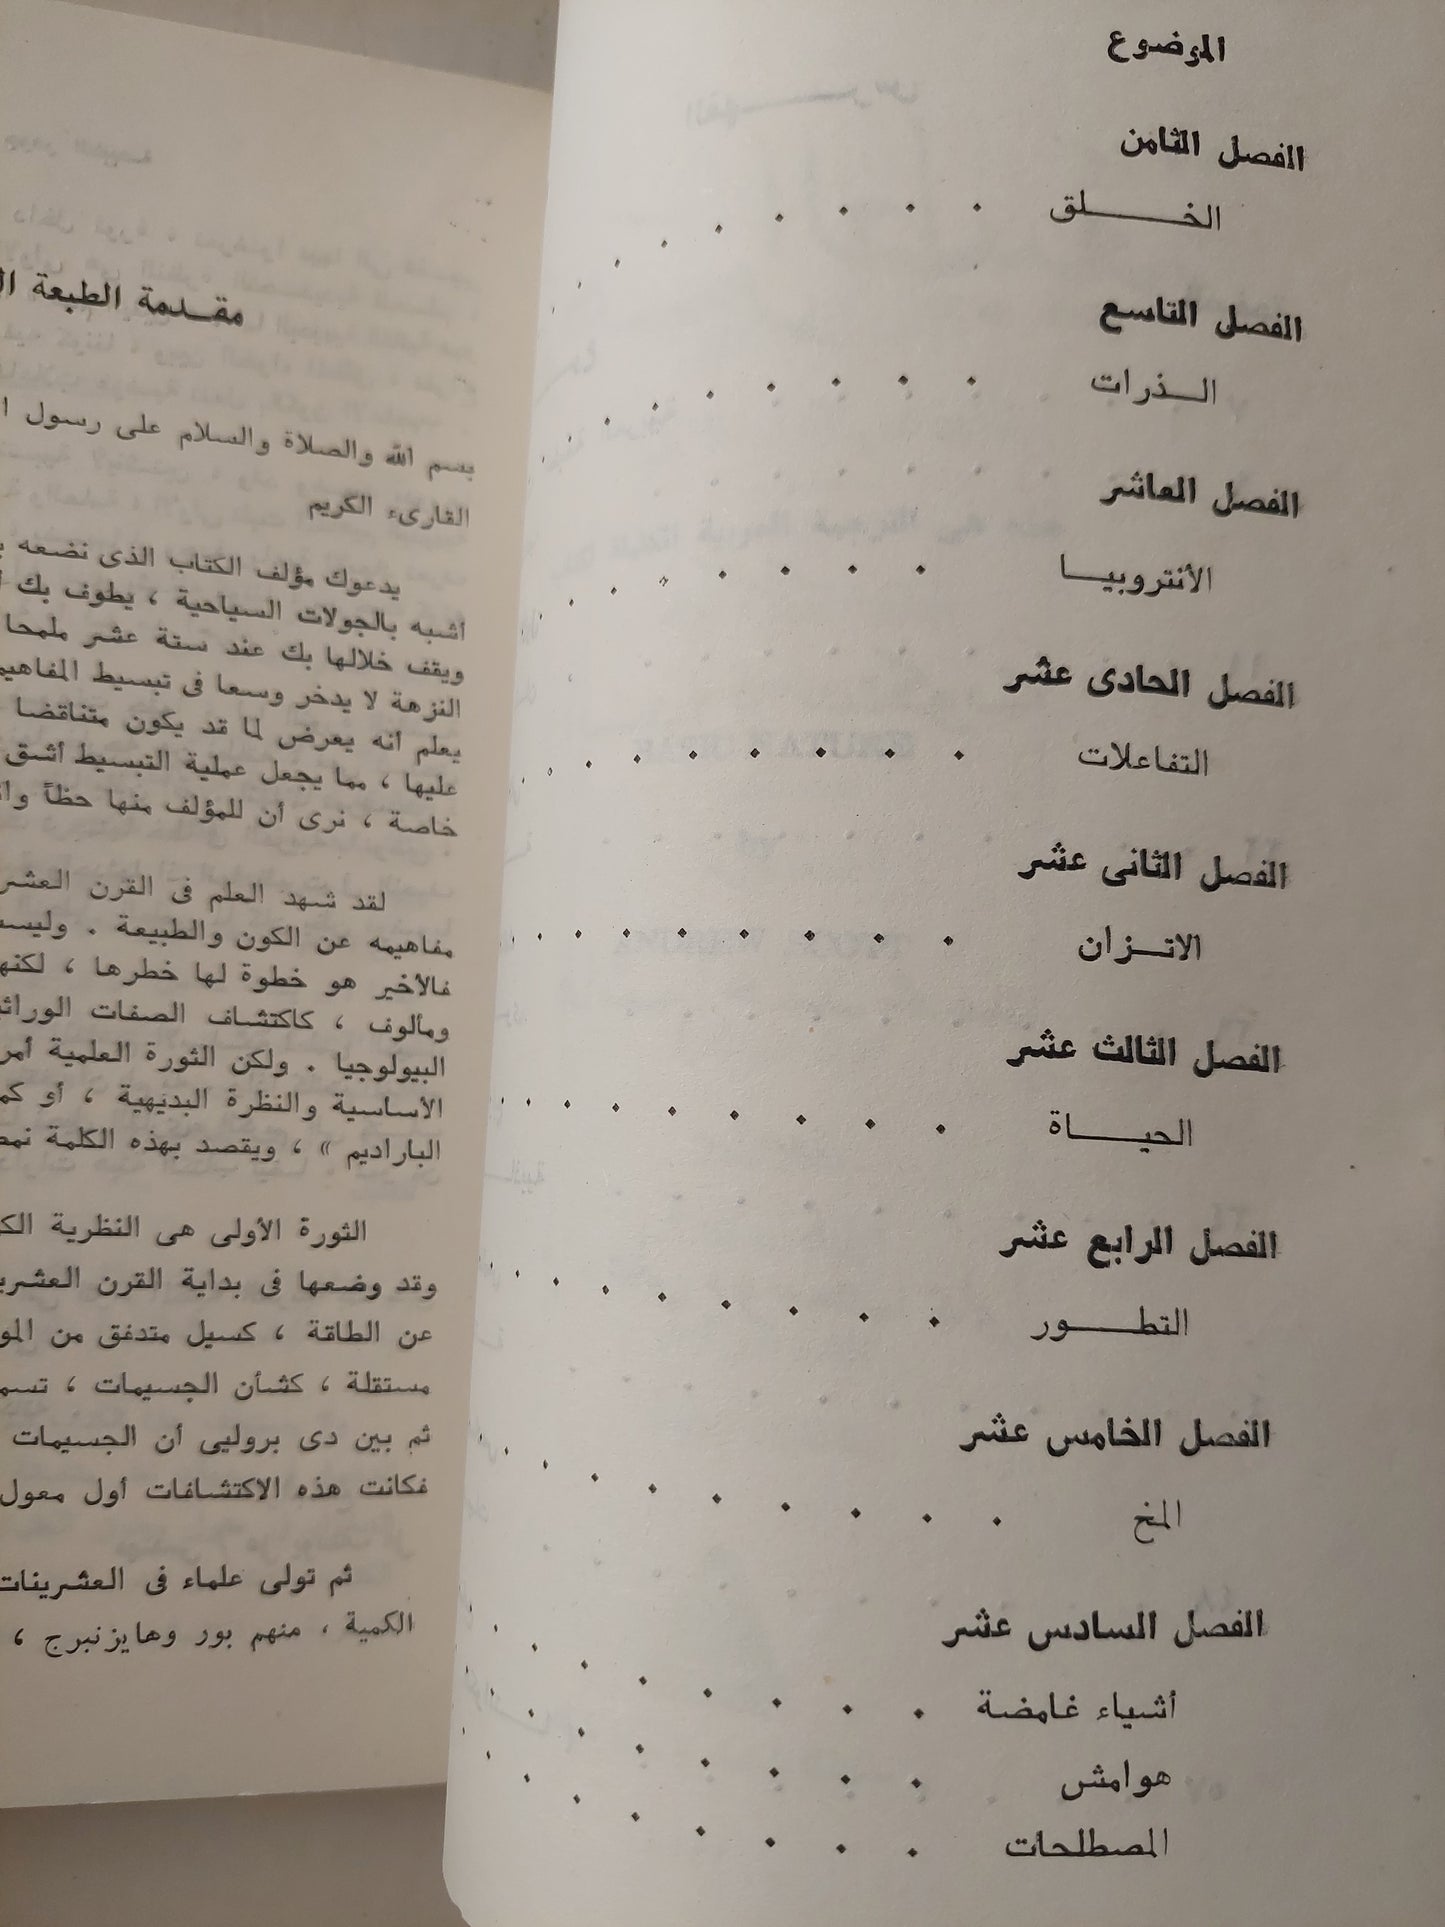 الموضوع
الفصل الثامن
الخلق
الفصل التاسع
الذرات
الفصل العاشر
الأنتروبيا
الفصل الحادى عشر
التفاعلات
الفصل الثانى عشر
الاتزان
الفصل الثالث عشر
الحياة
الفصل الرابع عشر
التطور
الفصل الخامس عشر
المخ
الفصل السادس عشر
أشياء غامضة
هوامش
المصطلحات
مقدمة الطبعة
بسم الله والصلاة والسلام على رسول
القارىء الكريم
يدعوك مؤلف الكتاب الذى نضعه
أشبه بالجولات السياحية ، يطوف بك
ويقف خلالها بك عند ستة عشر ملمحا
النزهة لا يدخر وسعا فى تبسيط المفاهيم
يعلم أنه يعرض لما قد يكون متناقضا
عليها ، مما يجعل عملية التبسيط أشق
خاصة ، نرى أن للمؤلف منها حظاً
لقد شهد العلم فى القرن
مفاهيمه عن الكون والطبيعة .
فالأخير هو خطوة لها خطرها ،
ومألوف ، كاكتشاف الصفات
البيولوجيا . ولكن الثورة العلمية
الأساسية والنظرة البديهية ، أو
الباراديم » ، ويقصد بهذه الكلمة
الثورة الأولى هى النظرية
وقد وضعها فى بداية القرن
عن الطاقة ، كسيل متدفق من
مستقلة ، كشأن الجسيمات ،
ثم بين دى بروليى أن الجسيمات
فكانت هذه الاكتشافات أول معول
ثم تولى علماء فى العشرينات
الكمية ، منهم بور وهايزنبرج ،